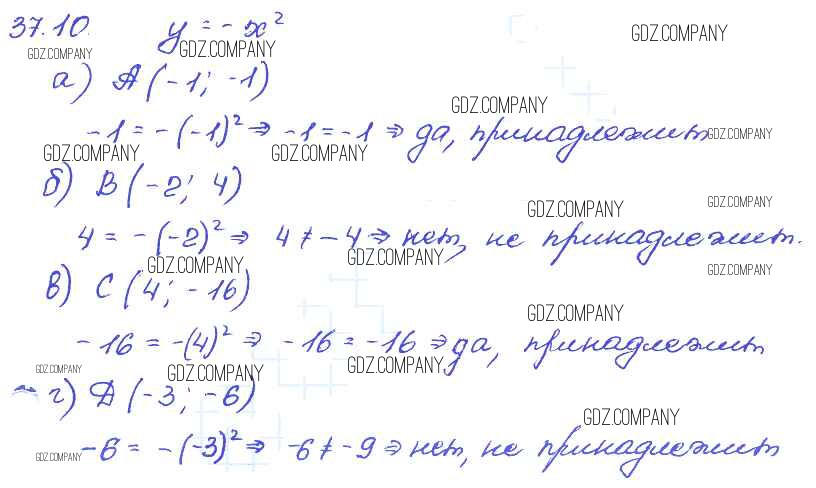 37.10. y = - x²
GDZ.COMPANY GDZ.COMPANY GDZ.COMPANY
а) A (-1; -1)
GDZ.COMPANY
-1 = - (-1)² ⇒ -1 = -1 ⇒ да, принадлежит
GDZ.COMPANY GDZ.COMPANY GDZ.COMPANY
б) B (-2; 4)
GDZ.COMPANY GDZ.COMPANY
4 = - (-2)² ⇒ 4 ≠ - 4 ⇒ нет, не принадлежит.
GDZ.COMPANY GDZ.COMPANY GDZ.COMPANY
в) C (4; - 16)
GDZ.COMPANY
- 16 = -(4)² ⇒ - 16 = - 16 ⇒ да, принадлежит
GDZ.COMPANY GDZ.COMPANY GDZ.COMPANY
г) D (-3; -6)
GDZ.COMPANY
-6 = - (-3)² ⇒ -6 ≠ -9 ⇒ нет, не принадлежит
GDZ.COMPANY